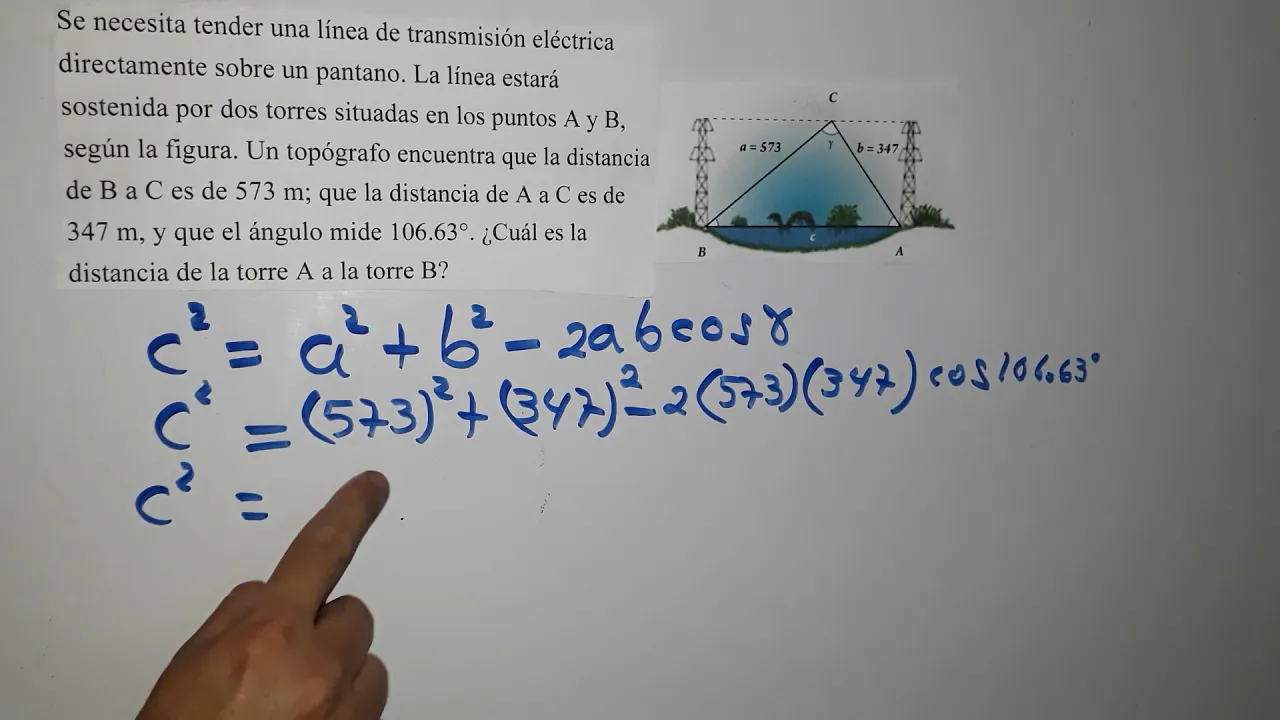 Se necesita tender una línea de transmisión eléctrica
directamente sobre un pantano. La línea estará
sostenida por dos torres situadas en los puntos A y B,
según la figura. Un topógrafo encuentra que la distancia
de B a C es de 573 m; que la distancia de A a C es de
347 m, y que el ángulo mide 106.63°. ¿Cuál es la
distancia de la torre A a la torre B?
C
a = 573
γ
b = 347
c
B
A
c² = a² + b² - 2ab cos γ
c² = (573)² + (347)² - 2(573)(347) cos 106.63°
c² =